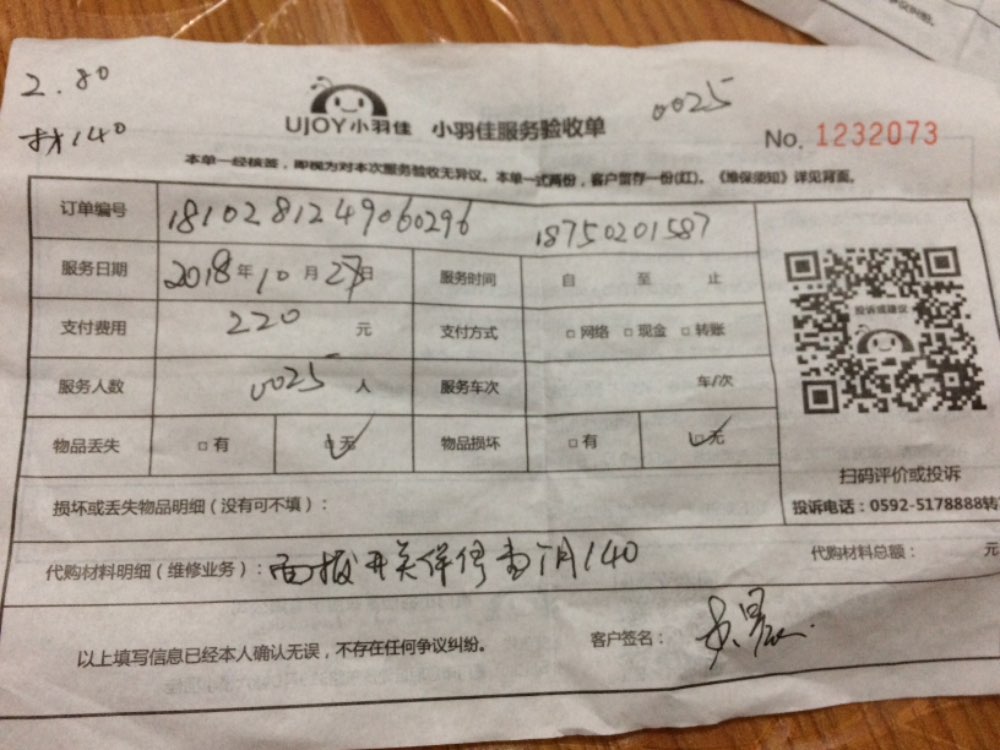 2.80
材140
UJOY小羽佳 小羽佳服务验收单
0025
No. 1232073
本单一经核签，即视为对本次服务验收无异议。本单一式两份，客户留存一份(红)。《维保须知》详见背面。
订单编号 18102812249060296 18750201587
服务日期 2018年10月27日 服务时间 自 至 止
支付费用 220 元 支付方式 □网络 □现金 □转账
服务人数 0025 人 服务车次 车/次
物品丢失 □有 □无 物品损坏 □有 □无
投诉或建议
扫码评价或投诉
投诉电话：0592-5178888转
损坏或丢失物品明细（没有可不填）：
代购材料明细（维修业务）：面板开关保修 个月140 代购材料总额： 元
以上填写信息已经本人确认无误，不存在任何争议纠纷。 客户签名：